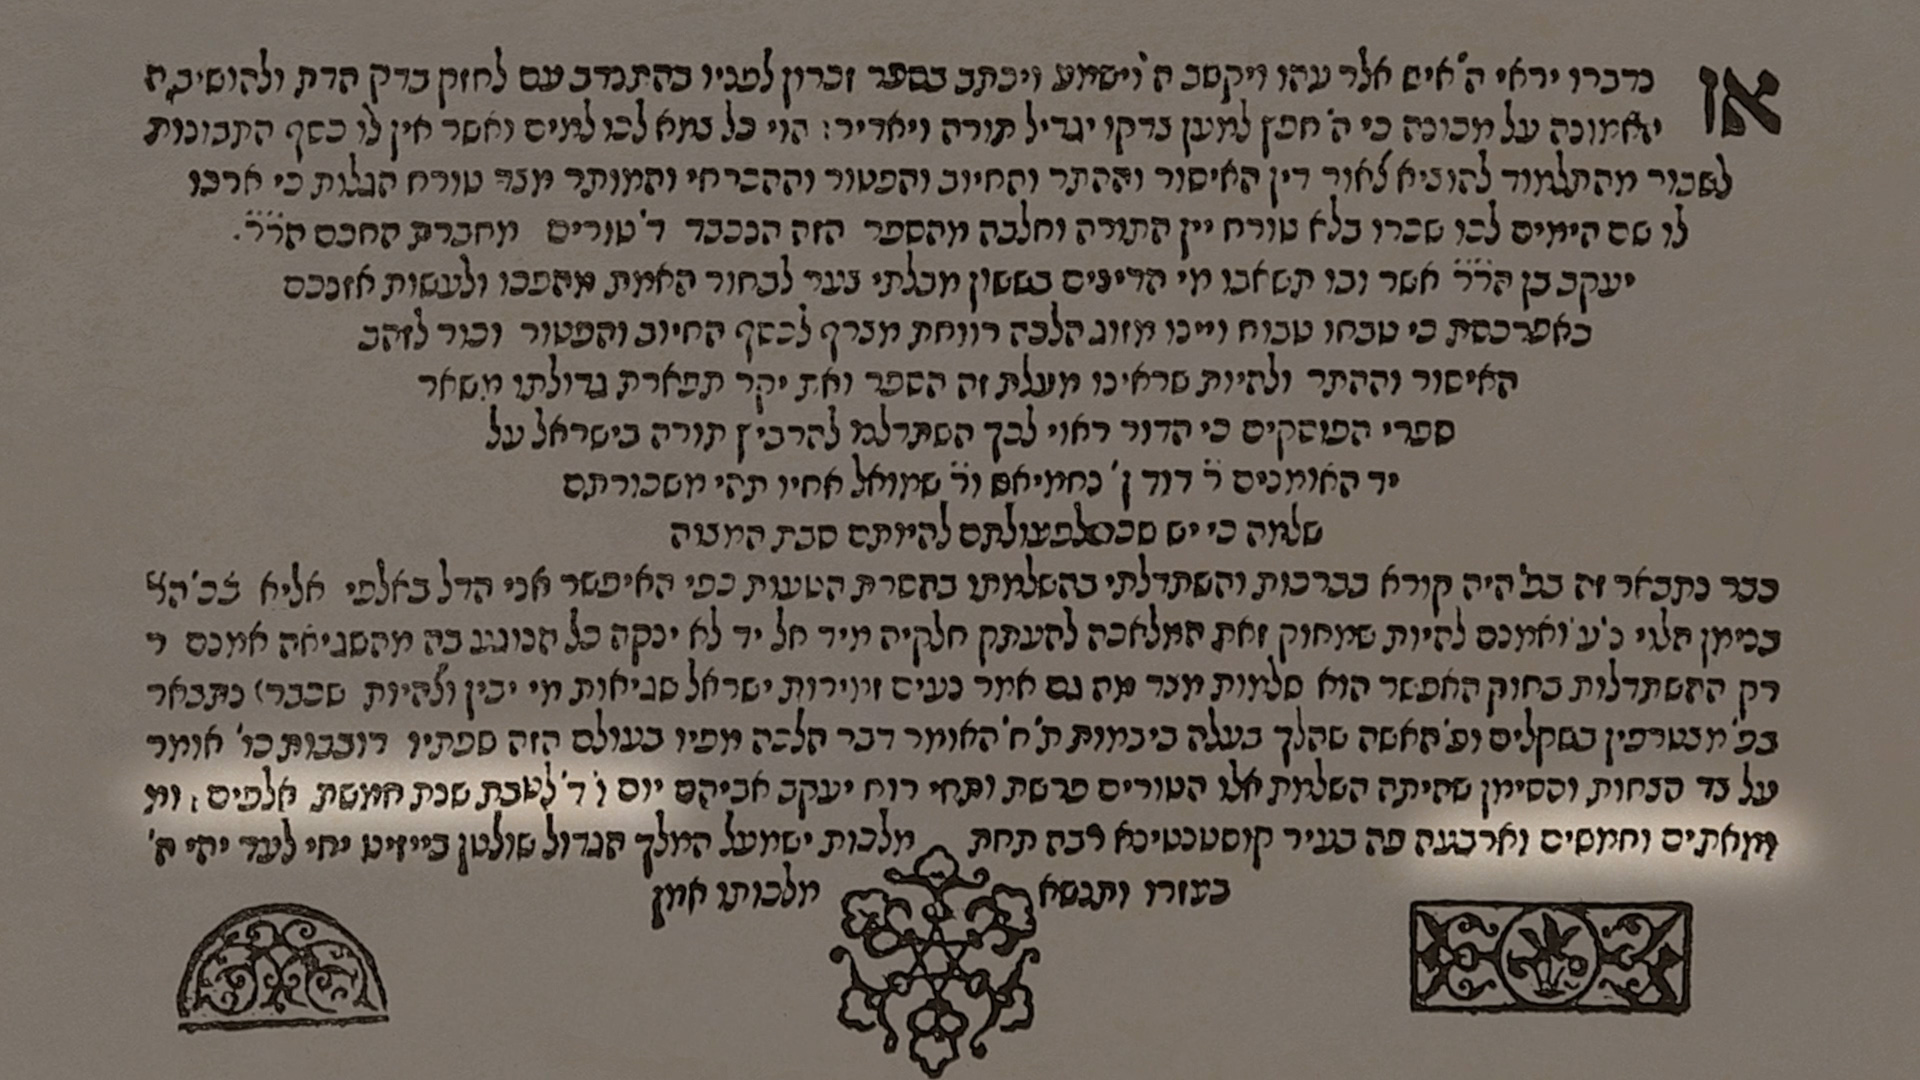 אז
נדברו יראי ה' איש אל רעהו ויקשב ה' וישמע ויכתב בספר זכרון לפניו בהתנדב עם לחזק בדק הדת ולהושיב ה
האמונה על מכונה כי ה' חפץ למען צדקו יגדיל תורה ויאדיר: הוי כל צמא לכו למים ואשר אין לו כסף התבונות
לשבור מהתלמוד להוציא לאור דין האיסור וההתר והחיוב והפטור וההכרחי והמותר מצד טורח הגלות כי ארכו
לו שם הימים לכו שברו בלא טורח יין התורה וחלבה מהספר הזה הנכבד ד' טורים מחברת החכם הר"ר
יעקב בן הר"ר אשר ובו תשאבו מי הדינים בששון מבלתי צער לבחור האמת מהפכו ולעשות אזנכם
כאפרכסת כי טבחו טבוח ויינו מזוג הלכה רווחת מצרף לכסף החיוב והפטור וכור לזהב
האיסור וההתר ולהיות שראינו מעלת זה הספר ואת יקר תפארת גדולתו משאר
ספרי הפוסקים כי הדור ראוי לכך השתדלנו להרביץ תורה בישראל על
יד האומנים ר' דוד ן' נחמיאס ור' שמואל אחיו תהי משכורתם
שלמה כי יש שכר לפעולתם להיותם סבת המצוה
כבר נתבאר זה בפ' היה קורא בברכות והשתדלתי בהשלמתו בהסרת הטעות כפי האיפשר אני הדל באלפי אליא
בנימן הלוי נ'ע' ואמנם להיות שמחוק זאת המלאכה להעתק חלקיה מיד אל יד לא ינקה כל הנוגע בה מהשגיאה אמנם
רק ההשתדלות בחוק האפשר הוא שלמות מצד מה גם אמר נעים זמירות ישראל שגיאות מי יבין ולהיות שכבר נתבאר
בפ' מצטרפין בשקלים ופ' האשה שהלך בעלה ביבמות ת'ח' האומר דבר הלכה מפיו בעולם הזה שפתיו דובבות כו' אומר
על צד הנחות והסימן שהיתה השלמת אלו הטורים פרשת ותחי רוח יעקב אביהם יום ו' ד' לטבת שנת חמשת אלפים: ומ
ומאתים וחמשים וארבעה פה בעיר קוסטנטינא רבה תחת מלכות ישמעאל המלך הגדול שולטן בייזיט יחי לעד יהי ה'
בעזרו ותנשא מלכותו אמן